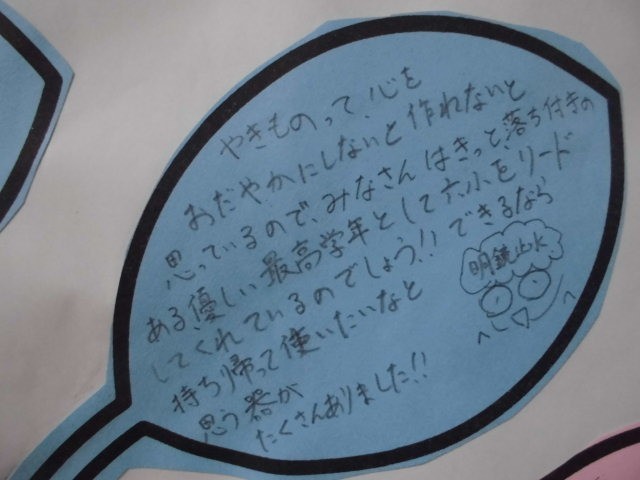 やきものって、心を
おだやかにしないと作れないと
思っているので、みなさんはきっと、落ち付きの
ある、優しい最高学年として六小をリード
してくれているのでしょう!! できるなら
持ち帰って使いたいなと
思う器が
たくさんありました!!
明鏡止水